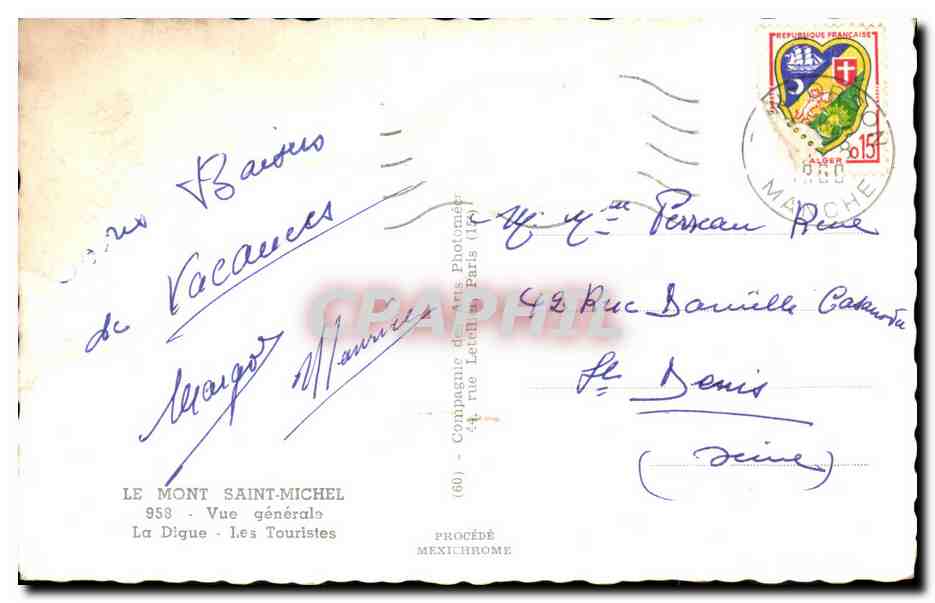 Bons Baisers
de Vacances
Margot Maurice
LE MONT SAINT-MICHEL
958 - Vue générale
La Digue - Les Touristes
(60) - Compagnie des Arts Photomécaniques
44, rue Letellier, Paris (15e)
CPAPHIL
PROCÉDÉ
MEXICHROME
REPUBLIQUE FRANCAISE
0,15
ALGER
1960
MANCHE
M. Mme Perreau René
42 Rue Danielle Casanova
St Denis
(Seine)